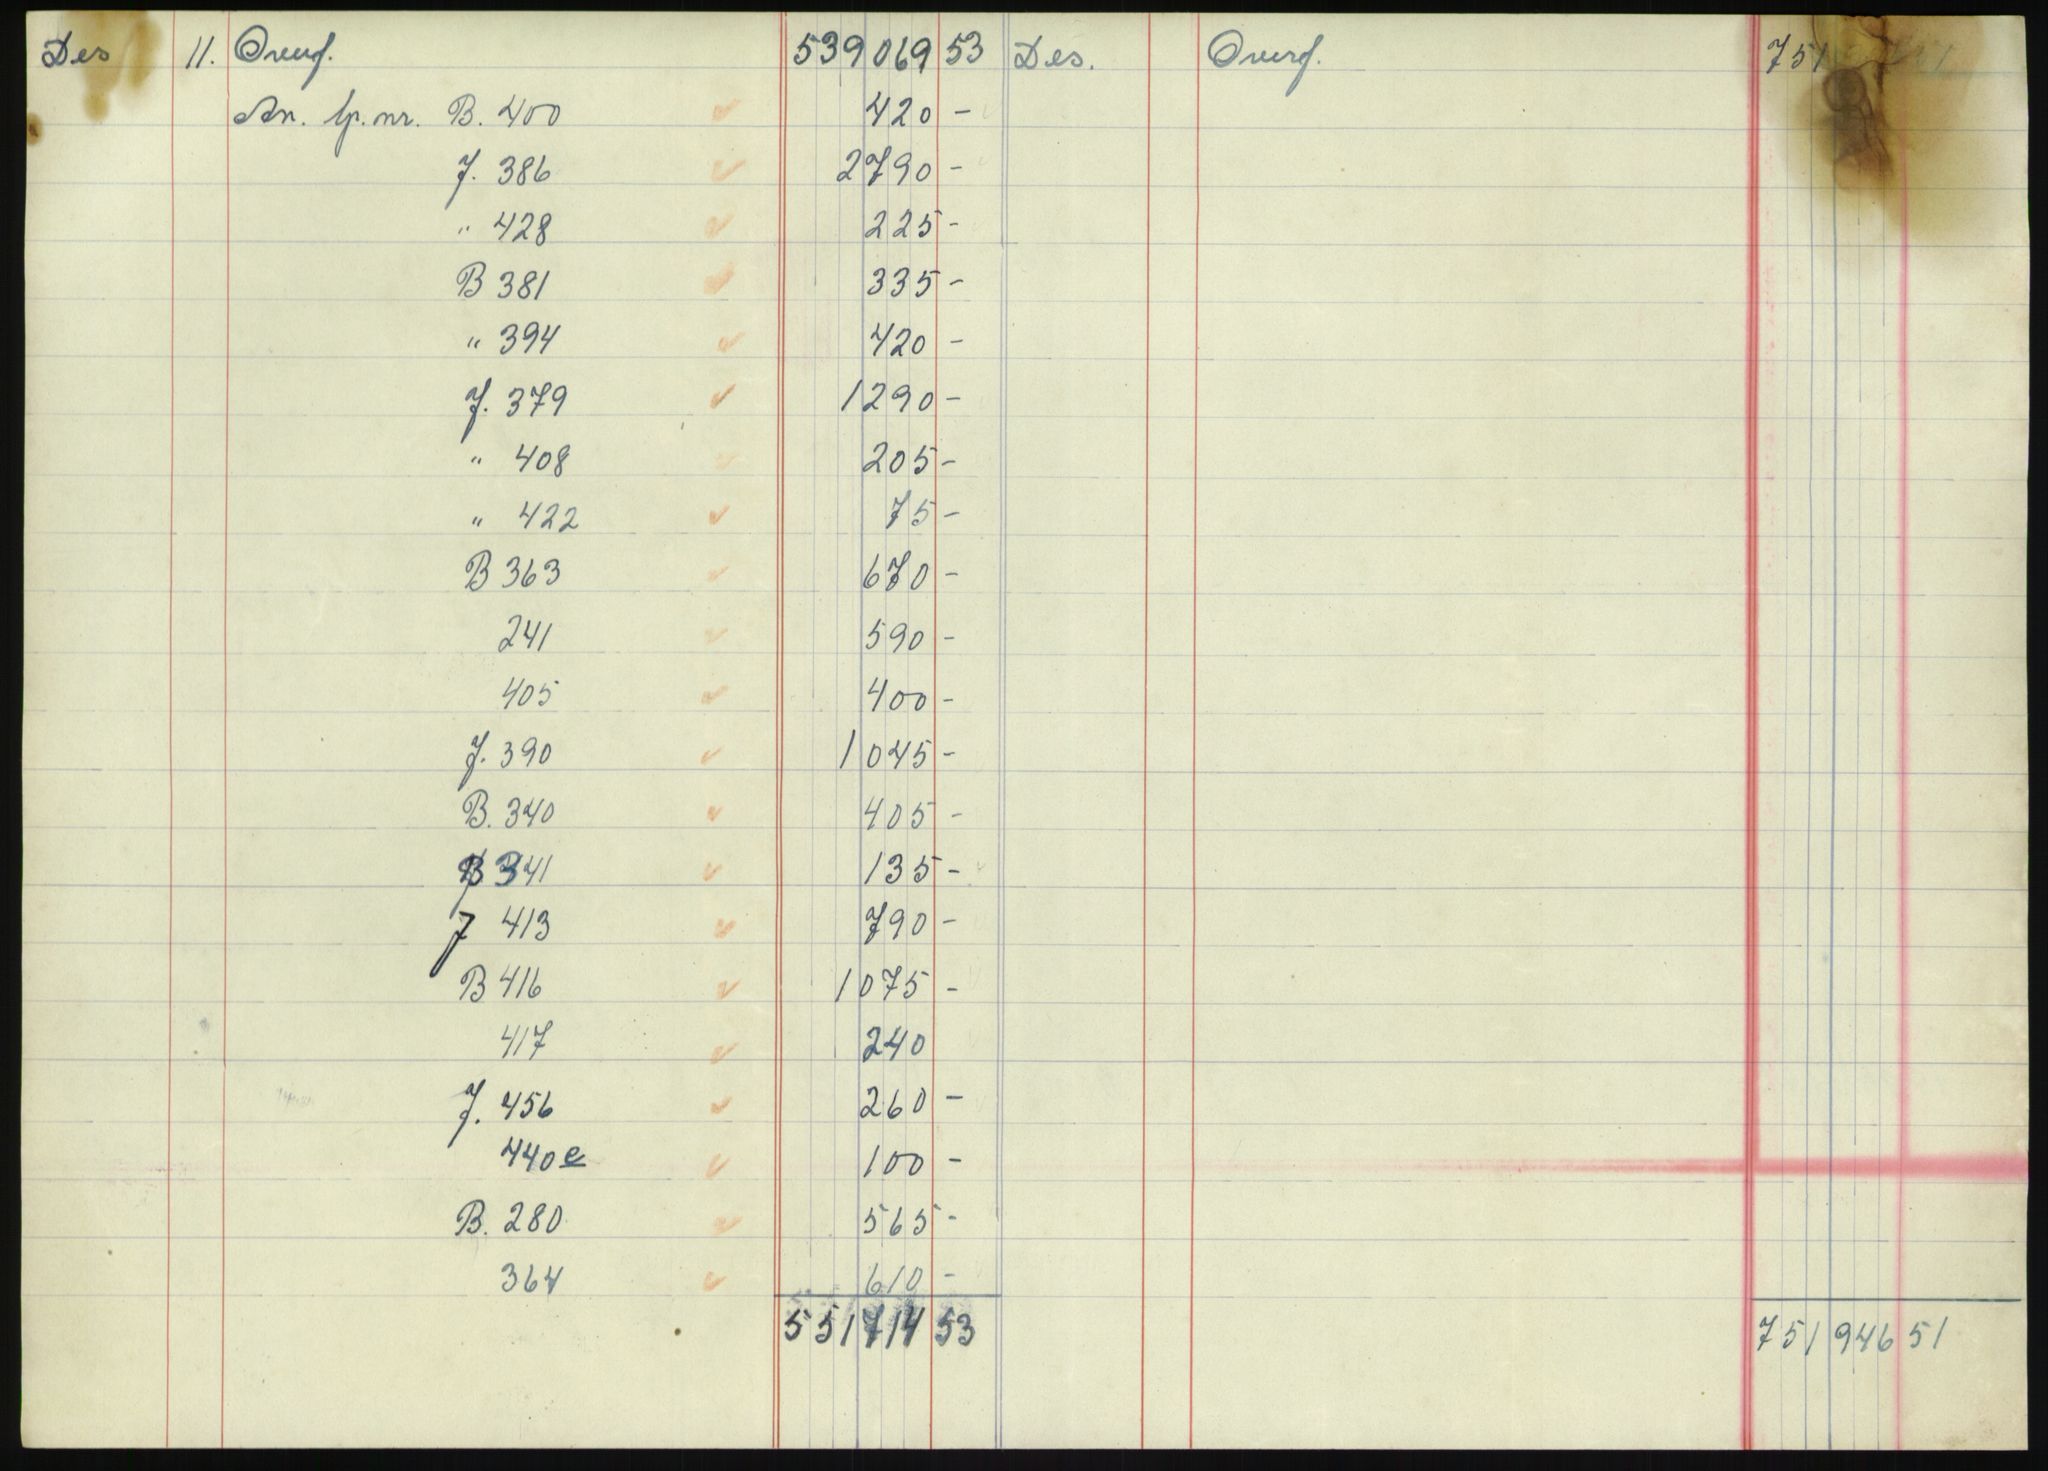 Des 11. Overf. 539 069 53 Des. Overf. 751
An. lp. nr. B. 400 420 -
J. 386 2790 -
" 428 225 -
B 381 335 -
" 394 420 -
J. 379 1290 -
" 408 205 -
" 422 75 -
B 363 670 -
241 590 -
405 400 -
J. 390 1045 -
B. 340 405 -
B 341 135 -
J 413 790 -
B 416 1075 -
417 240
J. 456 260 -
440 e 100 -
B. 280 565 -
364 610 -
551 714 53 751 946 51